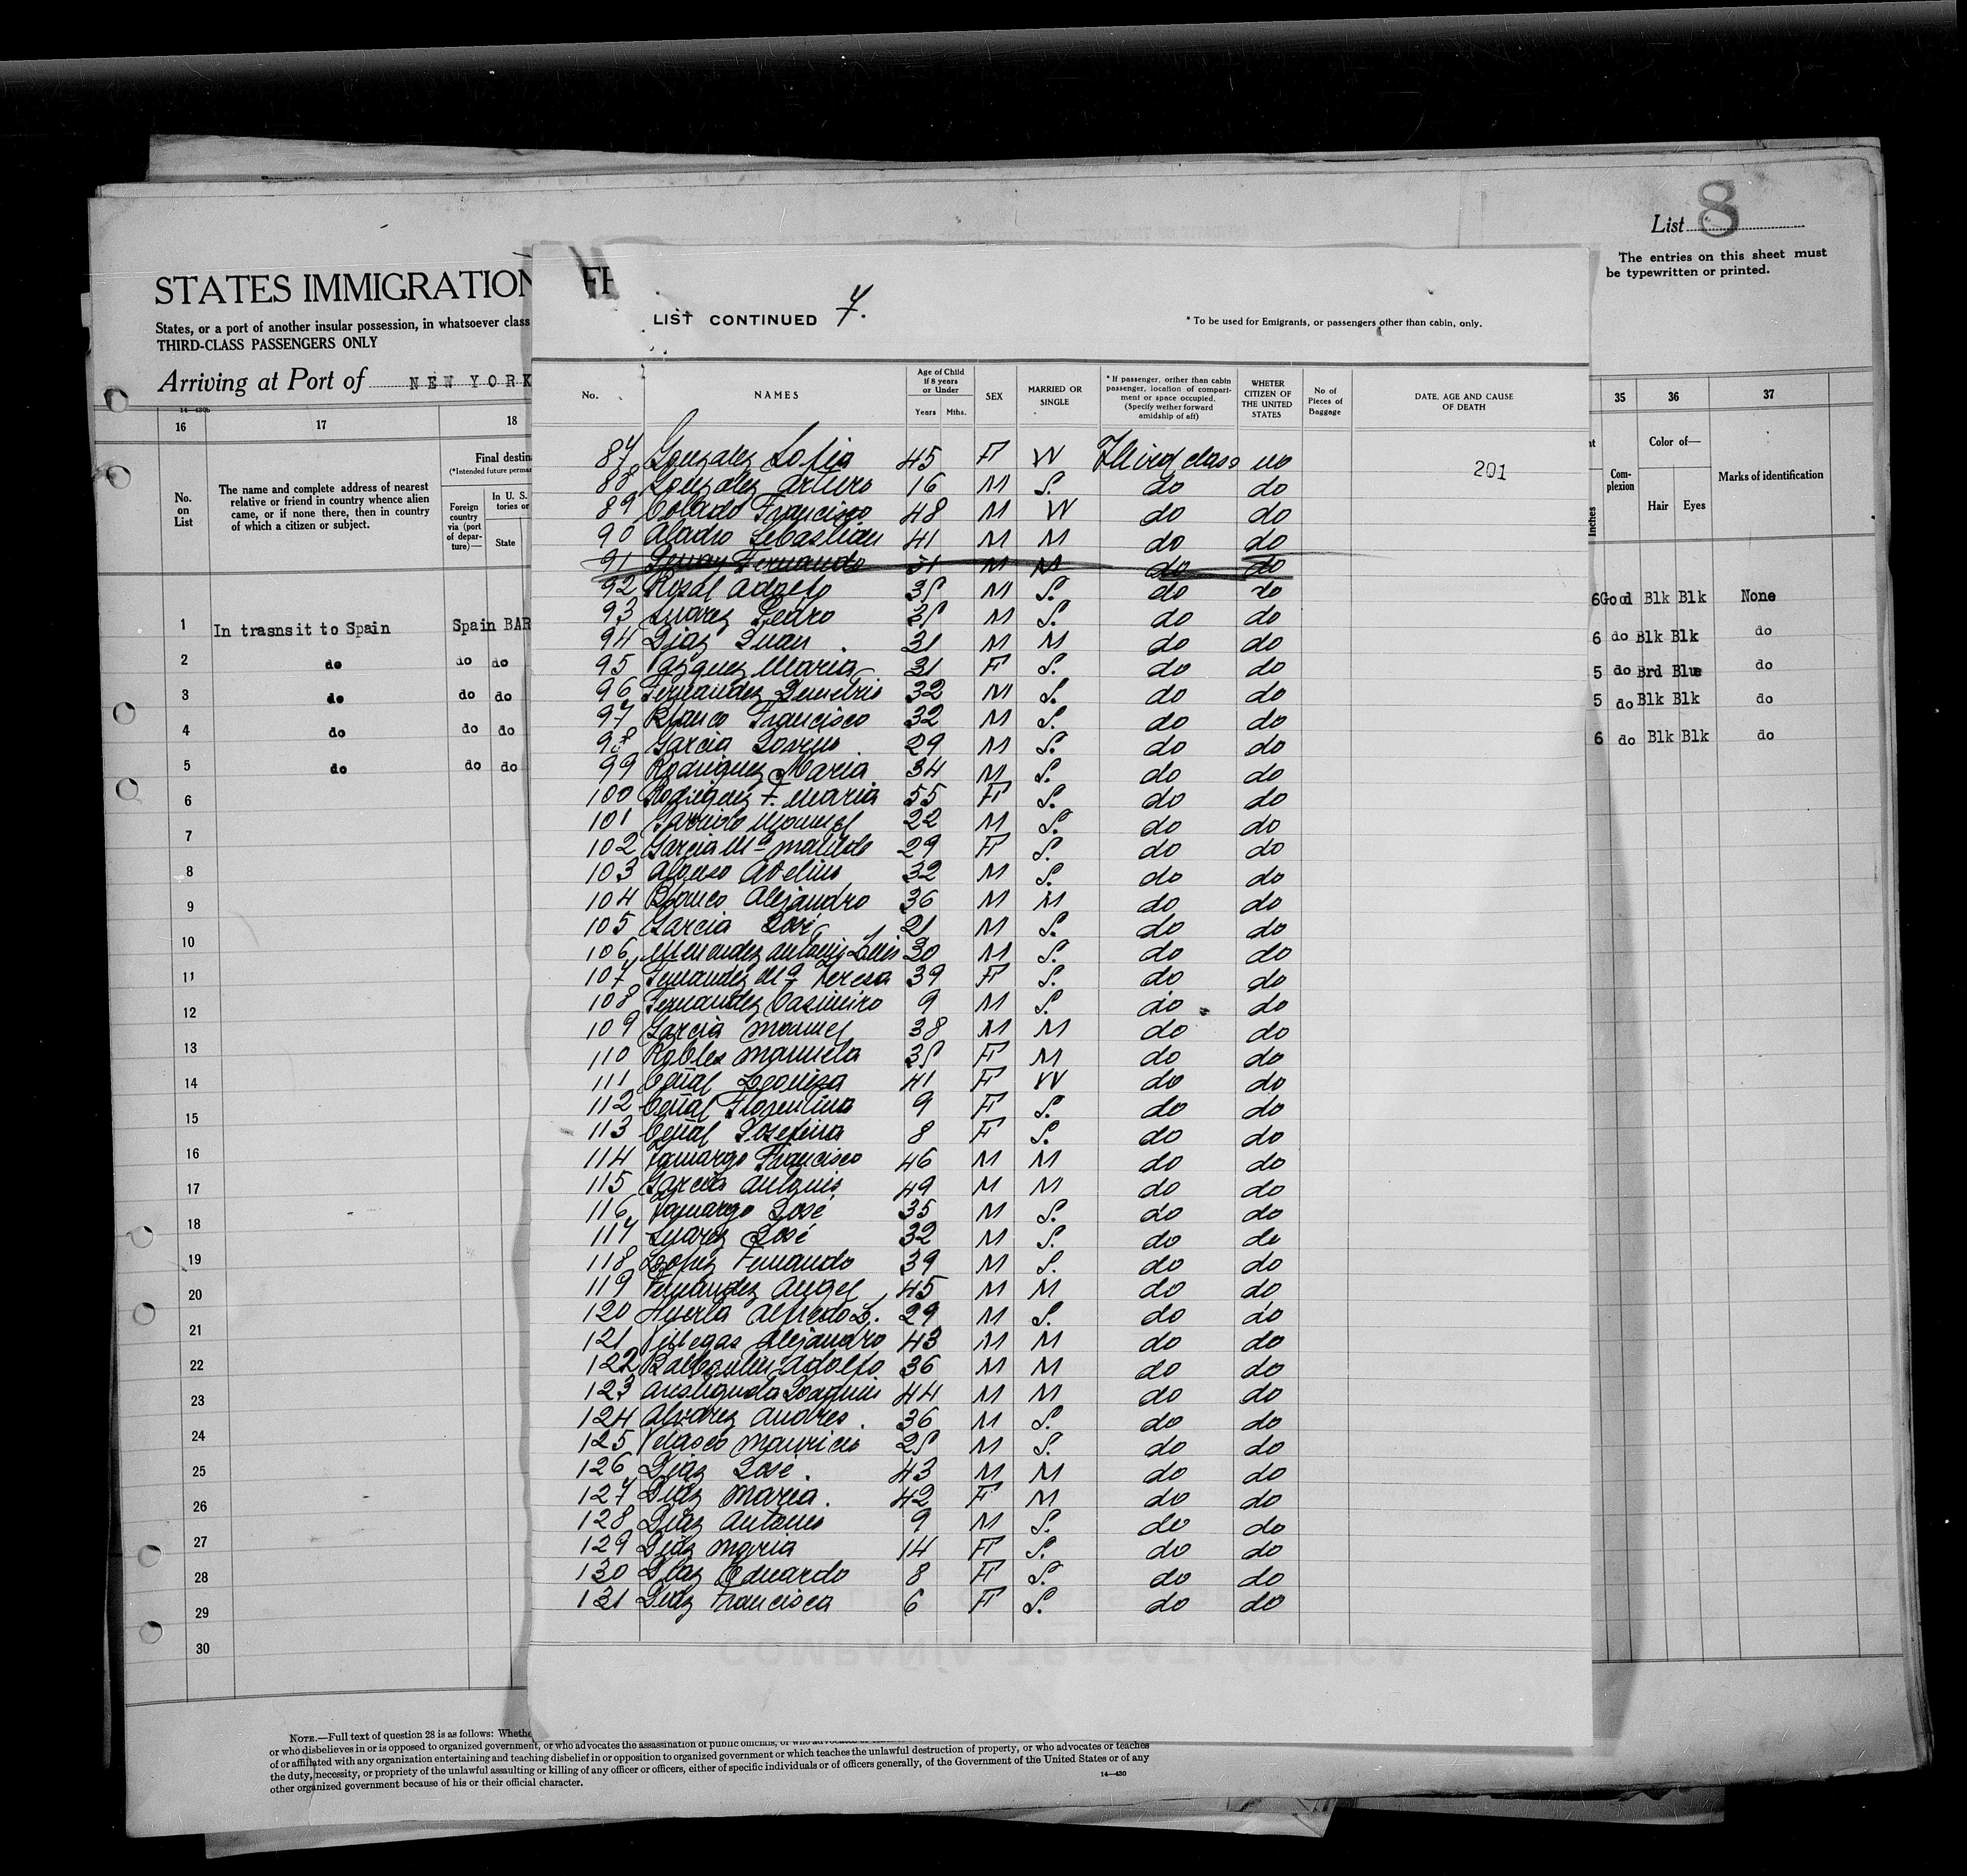 List 8
The entries on this sheet must
be typewritten or printed.
STATES IMMIGRATION
States, or a port of another insular possession, in whatsoever class
THIRD-CLASS PASSENGERS ONLY
Arriving at Port of NEW YORK
14—430b
16 17 18
No.
on
List
The name and complete address of nearest
relative or friend in country whence alien
came, or if none there, then in country
of which a citizen or subject.
Final destin
(*Intended future perma
Foreign
country
via (port
of depar-
ture)—
In U. S.
tories or
State
1 In trasnsit to Spain Spain BAR
2 do do do
3 do do do
4 do do do
5 do do do
6
7
8
9
10
11
12
13
14
15
16
17
18
19
20
21
22
23
24
25
26
27
28
29
30
LIST CONTINUED 7.
* To be used for Emigrants, or passengers other than cabin, only.
No.
NAMES
Age of Child
if 8 years
or Under
Years Mths.
SEX
MARRIED OR
SINGLE
* If passenger, orther than cabin
passenger, location of compart-
ment or space occupied.
(Specify wether forward
amidship of aft)
WHETER
CITIZEN OF
THE UNITED
STATES
No of
Pieces of
Baggage
DATE, AGE AND CAUSE
OF DEATH
201
87 Gonzalez Sofia 45 F W Third class no
88 Gonzalez Arturo 16 M S. do do
89 Colado Francisco 48 M W do do
90 Aladro Sebastian 41 M M do do
91 Fernando 31 M M do do
92 Rosal Adolfo 35 M S. do do
93 Suarez Pedro 25 M S. do do
94 Diaz Juan 31 M M do do
95 Vazquez Maria 31 F S. do do
96 Fernandez Demetrio 32 M S. do do
97 Blanco Francisco 32 M S. do do
98 Garcia 29 M S. do do
99 Rodriguez Maria 34 M S. do do
100 Rodriguez F. Maria 55 F S. do do
101 Garrido Manuel 22 M S. do do
102 Garcia Mª Matilde 29 F S. do do
103 Alonso Avelino 32 M S. do do
104 Blanco Alejandro 36 M M do do
105 Garcia José 21 M S. do do
106 Menendez Antonio Luis 30 M S. do do
107 Fernandez Mª Teresa 39 F S. do do
108 Fernandez Casimiro 9 M S. do do
109 Garcia Manuel 38 M M do do
110 Robles Manuela 35 F M do do
111 Ceñal 41 F W do do
112 Ceñal Florentina 9 F S. do do
113 Ceñal Josefina 8 F S. do do
114 Tamargo Francisco 46 M M do do
115 Garcia Antonio 49 M M do do
116 Tamargo José 35 M S. do do
117 Suarez José 32 M S. do do
118 Lopez Fernando 39 M S. do do
119 Fernandez Angel 45 M M do do
120 Huerta Alfredo L. 29 M S. do do
121 Villegas Alejandro 43 M M do do
122 Adolfo 36 M M do do
123 Joaquin 44 M M do do
124 Alvarez Andres. 36 M S. do do
125 Velasco Mauricio 25 M S. do do
126 Diaz José. 43 M M do do
127 Diaz Maria. 42 F M do do
128 Diaz Antonio 9 M S. do do
129 Diaz Maria 14 F S. do do
130 Diaz Eduardo 8 F S. do do
131 Diaz Francisca 6 F S. do do
COMPAÑÍA TRASATLÁNTICA
35 36 37
Inches
Com-
plexion
Color of—
Hair Eyes
Marks of identification
6 Good Blk Blk None
6 do Blk Blk do
5 do Brd Blue do
5 do Blk Blk do
6 do Blk Blk do
NOTE.—Full text of question 28 is as follows: Whethe
or who disbelieves in or is opposed to organized government, or who advocates the assassination of public officials, or who advocates
of or affiliated with any organization entertaining and teaching disbelief in or opposition to organized government or which teaches the unlawful destruction of property, or who advocates or teaches
the duty, necessity, or propriety of the unlawful assaulting or killing of any officer or officers, either of specific individuals or of officers generally, of the Government of the United States or of any
other organized government because of his or their official character.
14—430